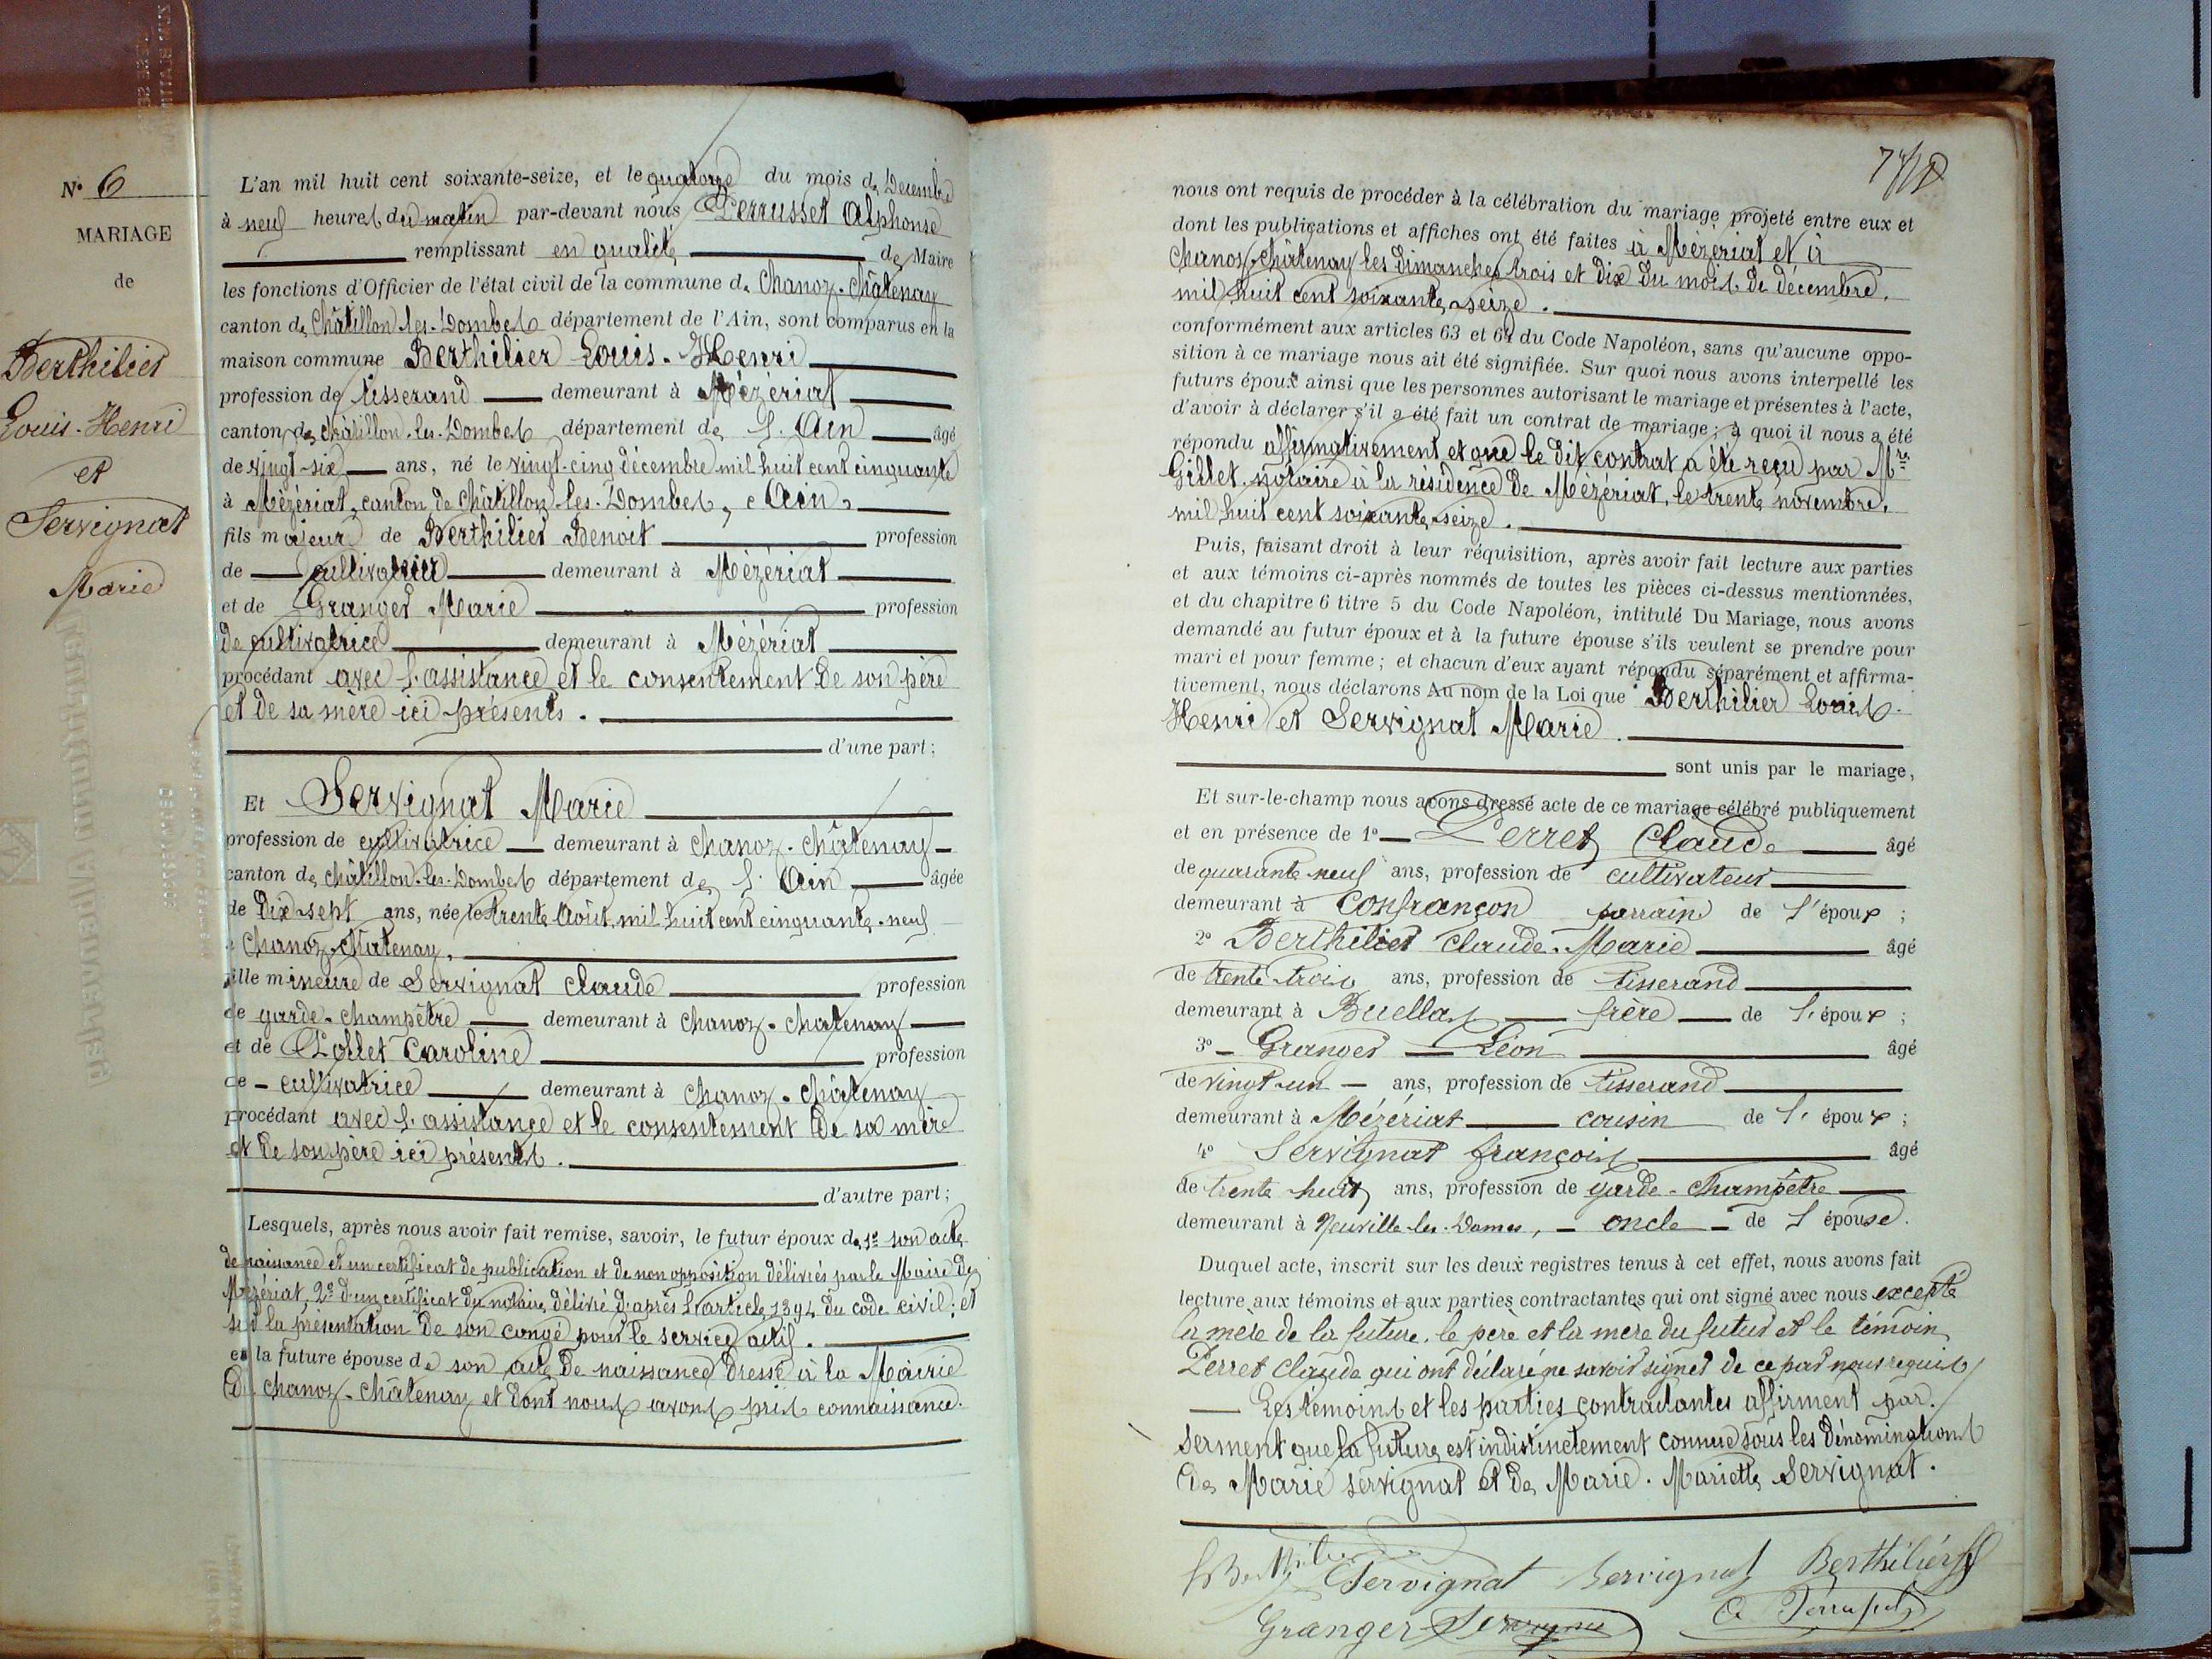 N° 6
MARIAGE
de
Berthilier
Louis-Henri
et
Servignat
Marie
L'an mil huit cent soixante-seize, et le quatorze du mois de Décembre
à neuf heures du matin par-devant nous Perrusset Alphonse
remplissant en qualité de Maire
les fonctions d'Officier de l'état civil de la commune de Chanoz-Châtenay
canton de Châtillon-les-Dombes département de l'Ain, sont comparus en la
maison commune Berthilier Louis-Henri
profession de tisserand demeurant à Mézériat
canton de Châtillon-les-Dombes département de l'Ain âgé
de vingt-six ans, né le vingt-cinq décembre mil huit cent cinquante
à Mézériat, canton de Châtillon-les-Dombes, Ain,
fils majeur de Berthilier Benoit profession
de cultivateur demeurant à Mézériat
et de Granger Marie profession
de cultivatrice demeurant à Mézériat
procédant avec l'assistance et le consentement de son père
et de sa mère ici présents.
d'une part;
Et Servignat Marie
profession de cultivatrice demeurant à Chanoz-Châtenay
canton de Châtillon-les-Dombes département de l'Ain âgée
de dix-sept ans, née le trente Août mil huit cent cinquante-neuf
à Chanoz-Châtenay,
fille mineure de Servignat Claude profession
de garde-champêtre demeurant à Chanoz-Chatenay
et de Pollet Caroline profession
de cultivatrice demeurant à Chanoz-Châtenay
procédant avec l'assistance et le consentement de sa mère
et de son père ici présents.
d'autre part;
Lesquels, après nous avoir fait remise, savoir, le futur époux de 1° son acte
de naissance et un certificat de publication et de non opposition délivrés par le Maire de
Mézériat, 2° d'un certificat du notaire délivré d'après l'article 1394 du code civil; et
sur la présentation de son congé pour le service actif.
et la future épouse de son acte de naissance dressé à la Mairie
de Chanoz-Châtenay et dont nous avons pris connaissance.
nous ont requis de procéder à la célébration du mariage projeté entre eux et
dont les publications et affiches ont été faites à Mézériat et à
Chanoz-Châtenay les dimanches trois et dix du mois de décembre,
mil huit cent soixante-seize.
conformément aux articles 63 et 64 du Code Napoléon, sans qu'aucune oppo-
sition à ce mariage nous ait été signifiée. Sur quoi nous avons interpellé les
futurs époux ainsi que les personnes autorisant le mariage et présentes à l'acte,
d'avoir à déclarer s'il a été fait un contrat de mariage; à quoi il nous a été
répondu affirmativement et que le dit contrat a été reçu par Mre
Gillet, notaire à la résidence de Mézériat, le trente novembre,
mil huit cent soixante-seize.
Puis, faisant droit à leur réquisition, après avoir fait lecture aux parties
et aux témoins ci-après nommés de toutes les pièces ci-dessus mentionnées,
et du chapitre 6 titre 5 du Code Napoléon, intitulé Du Mariage, nous avons
demandé au futur époux et à la future épouse s'ils veulent se prendre pour
mari et pour femme; et chacun d'eux ayant répondu séparément et affirma-
tivement, nous déclarons Au nom de la Loi que Berthilier Louis-
Henri et Servignat Marie.
sont unis par le mariage,
Et sur-le-champ nous avons dressé acte de ce mariage célébré publiquement
et en présence de 1° Perret Claude âgé
de quarante neuf ans, profession de cultivateur
demeurant à Confrançon parrain de l'époux;
2° Berthilier Claude-Marie âgé
de trente-trois ans, profession de tisserand
demeurant à Buellas frère de l'époux;
3° Granger Léon âgé
de vingt-un ans, profession de tisserand
demeurant à Mézériat cousin de l'époux;
4° Servignat françois âgé
de trente-huit ans, profession de garde-champêtre
demeurant à Neuville-les-Dames, oncle de l'épouse.
Duquel acte, inscrit sur les deux registres tenus à cet effet, nous avons fait
lecture aux témoins et aux parties contractantes qui ont signé avec nous excepté
la mère de la future, le père et la mère du futur et le témoin
Perret Claude qui ont déclaré ne savoir signer de ce par nous requis
Les témoins et les parties contractantes affirment par
serment que la future est indistinctement connue sous les dénominations
de Marie Servignat et de Marie-Mariette Servignat.
Servignat Servignat Berthilier
Granger